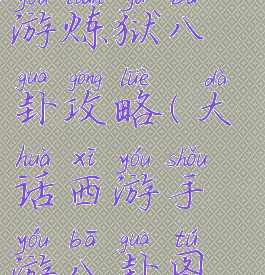 游炼狱八
guà gōng lüè dà
卦攻略(大
huà xī yóu shǒu
话西游手
yóu bā guà tú
游八卦图